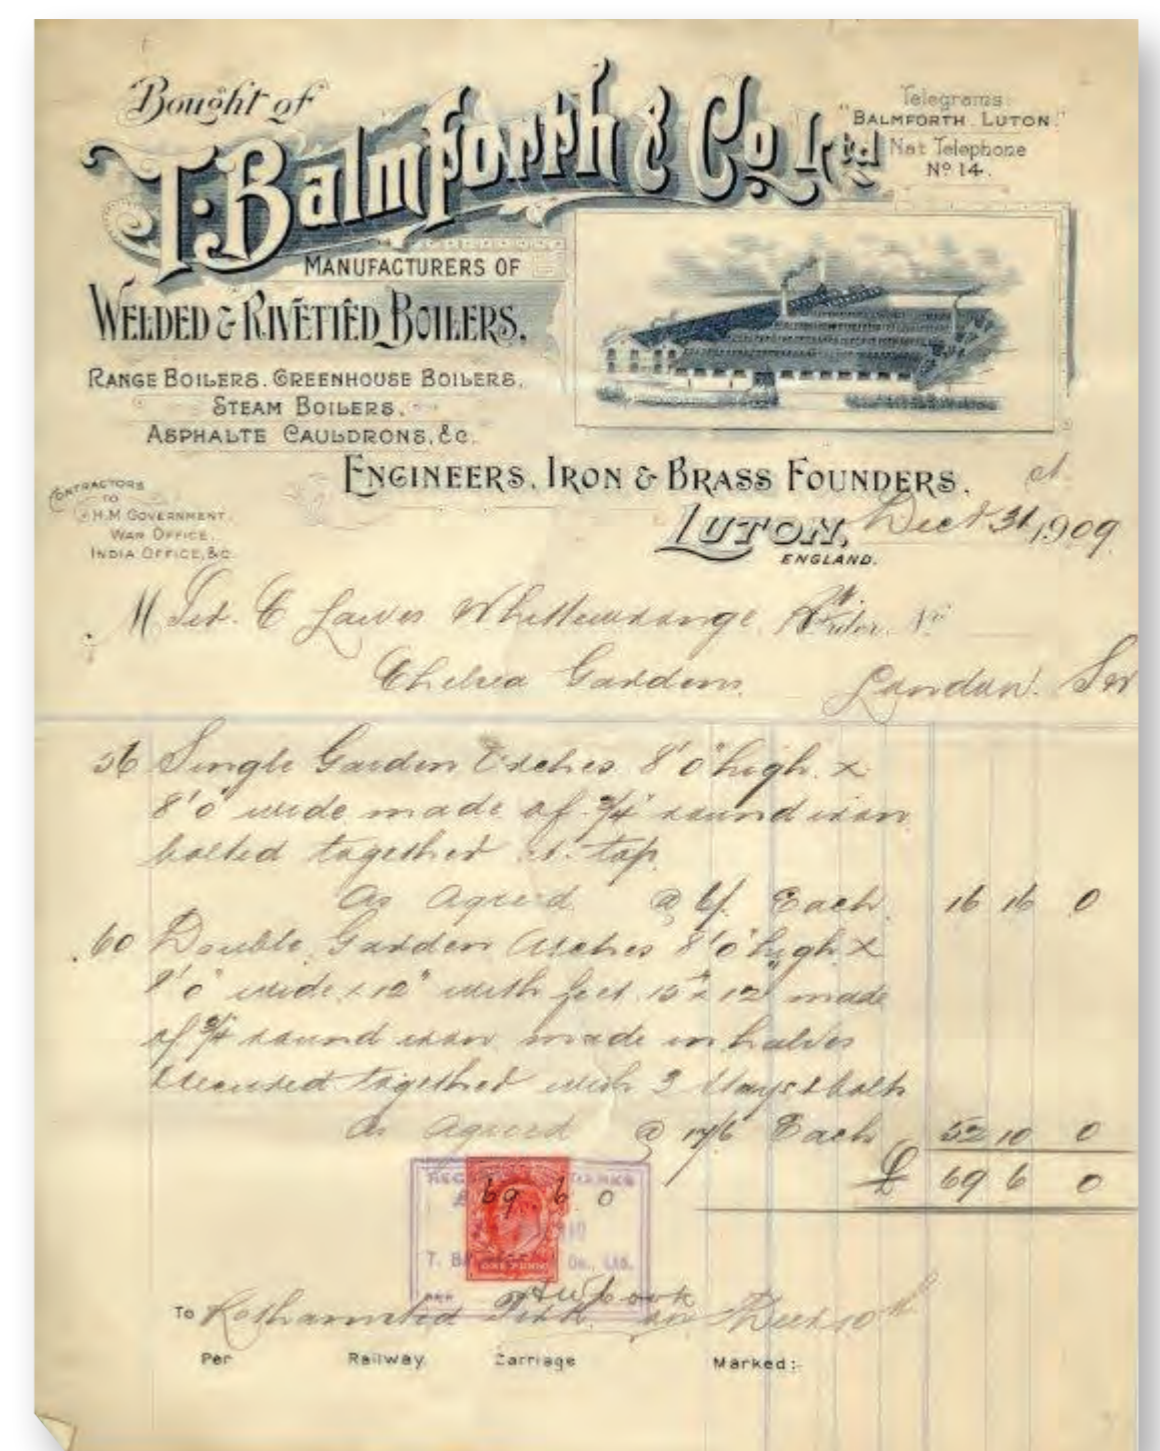 Bought of
T. Balmforth & Co. Ltd
Telegrams:
"BALMFORTH. LUTON."
Nat Telephone
No 14.
MANUFACTURERS OF
WELDED & RIVETTED BOILERS,
RANGE BOILERS. GREENHOUSE BOILERS,
STEAM BOILERS,
ASPHALTE CAULDRONS, &c.
ENGINEERS, IRON & BRASS FOUNDERS.
CONTRACTORS
TO
H.M GOVERNMENT.
WAR OFFICE.
INDIA OFFICE, &c.
LUTON,
ENGLAND.
Dec 31 1909
M Sir. C Lawes Whittewronge
Chelsea Gardens London. SW
56 Single Garden Arches 8'0" high x
8'0" wide made of 3/4" round iron
bolted together at top
As Agreed @ 6/- Each 16 16 0
60 Double Garden Arches 8'0" high x
8'0" wide x 12" with feet 15" x 12" made
of 3/4 round iron made in halves
secured together with 3 stays & bolts
As Agreed @ 17/6 Each 52 10 0
£ 69 6 0
RECEIVED THANKS
£ 69 6 0
T. Co., Ltd.
ONE PENNY
PER
To Rothamsted Park on Dec 10th
Per Railway. Carriage Marked:-